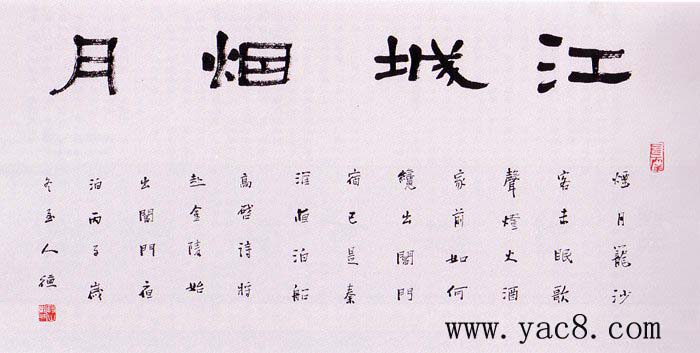 江城烟月
煙月籠沙
客未眠歌
聲燈火酒
家前如何
纔出閶門
宿已是秦
淮夜泊船
高啓詩將
赴金陵始
出閶門夜
泊丙子歲
冬至人德
www.yac8.com